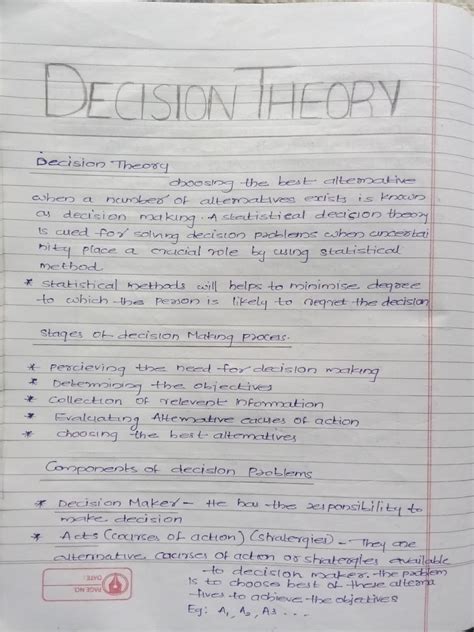 DECISION THEORY
Decision Theory
choosing the best alternative
when a number of alternatives exists is known
as decision making. A statistical decision theory
is used for solving decision problems when uncertai
nity place a crucial role by using statistical
method
* Statistical methods will helps to minimise degree
to which the person is likely to regret the decision
Stages of decision Making process.
* percieving the need for decision making
* Determining the objectives
* Collection of relevent Information
* Evaluating Alternative couses of action
* choosing the best alternatives
Components of decision Problems
* Decision Maker - He has the responsibility to
make decision
* Acts (courses of action) (Strategies) - They are
alternative courses of action or strategies available
to decision maker. the problem
is to choose best of these alterna
tives to achieve the objectives
Eg: A1, A2, A3 ...
PAGE NO.:
DATE: